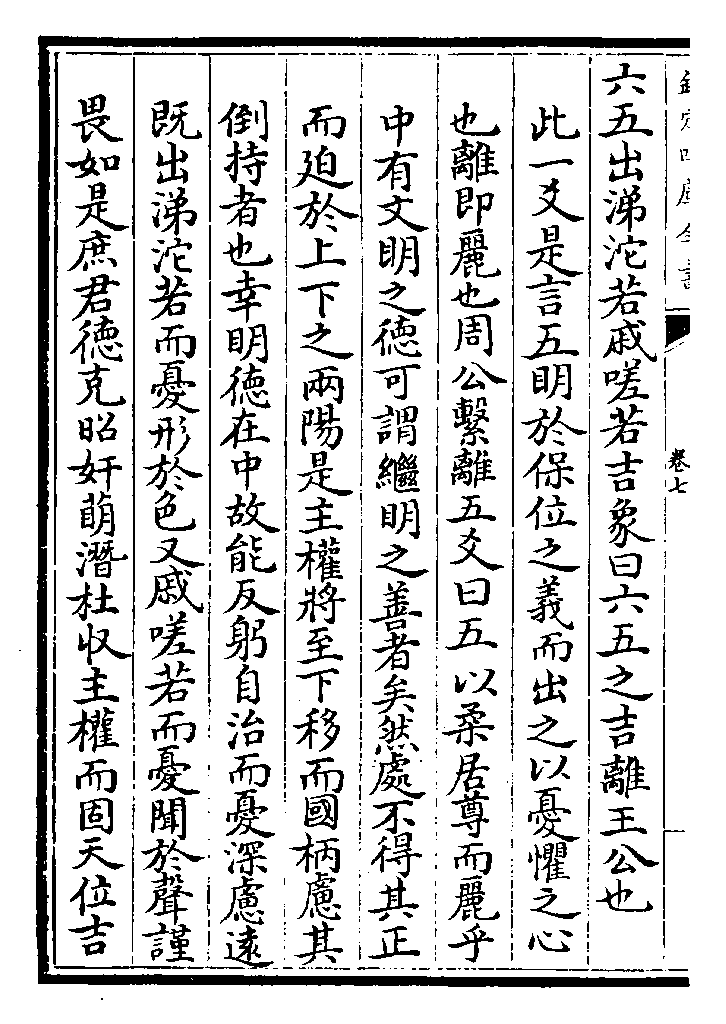 六五出涕沱若戚嗟若吉象曰六五之吉離王公也
此一爻是言五明於保位之義而出之以憂懼之心
也離即麗也周公繫離五爻曰五以柔居尊而麗乎
中有文明之德可謂繼明之善者矣然處不得其正
而廹於上下之兩陽是主權將至下移而國柄慮其
倒持者也幸明德在中故能反躬自治而憂深慮逺
既出涕沱若而憂形於色又戚嗟若而憂聞於聲謹
畏如是庶君徳克昭奸萌潛杜收主權而固天位吉
卷七